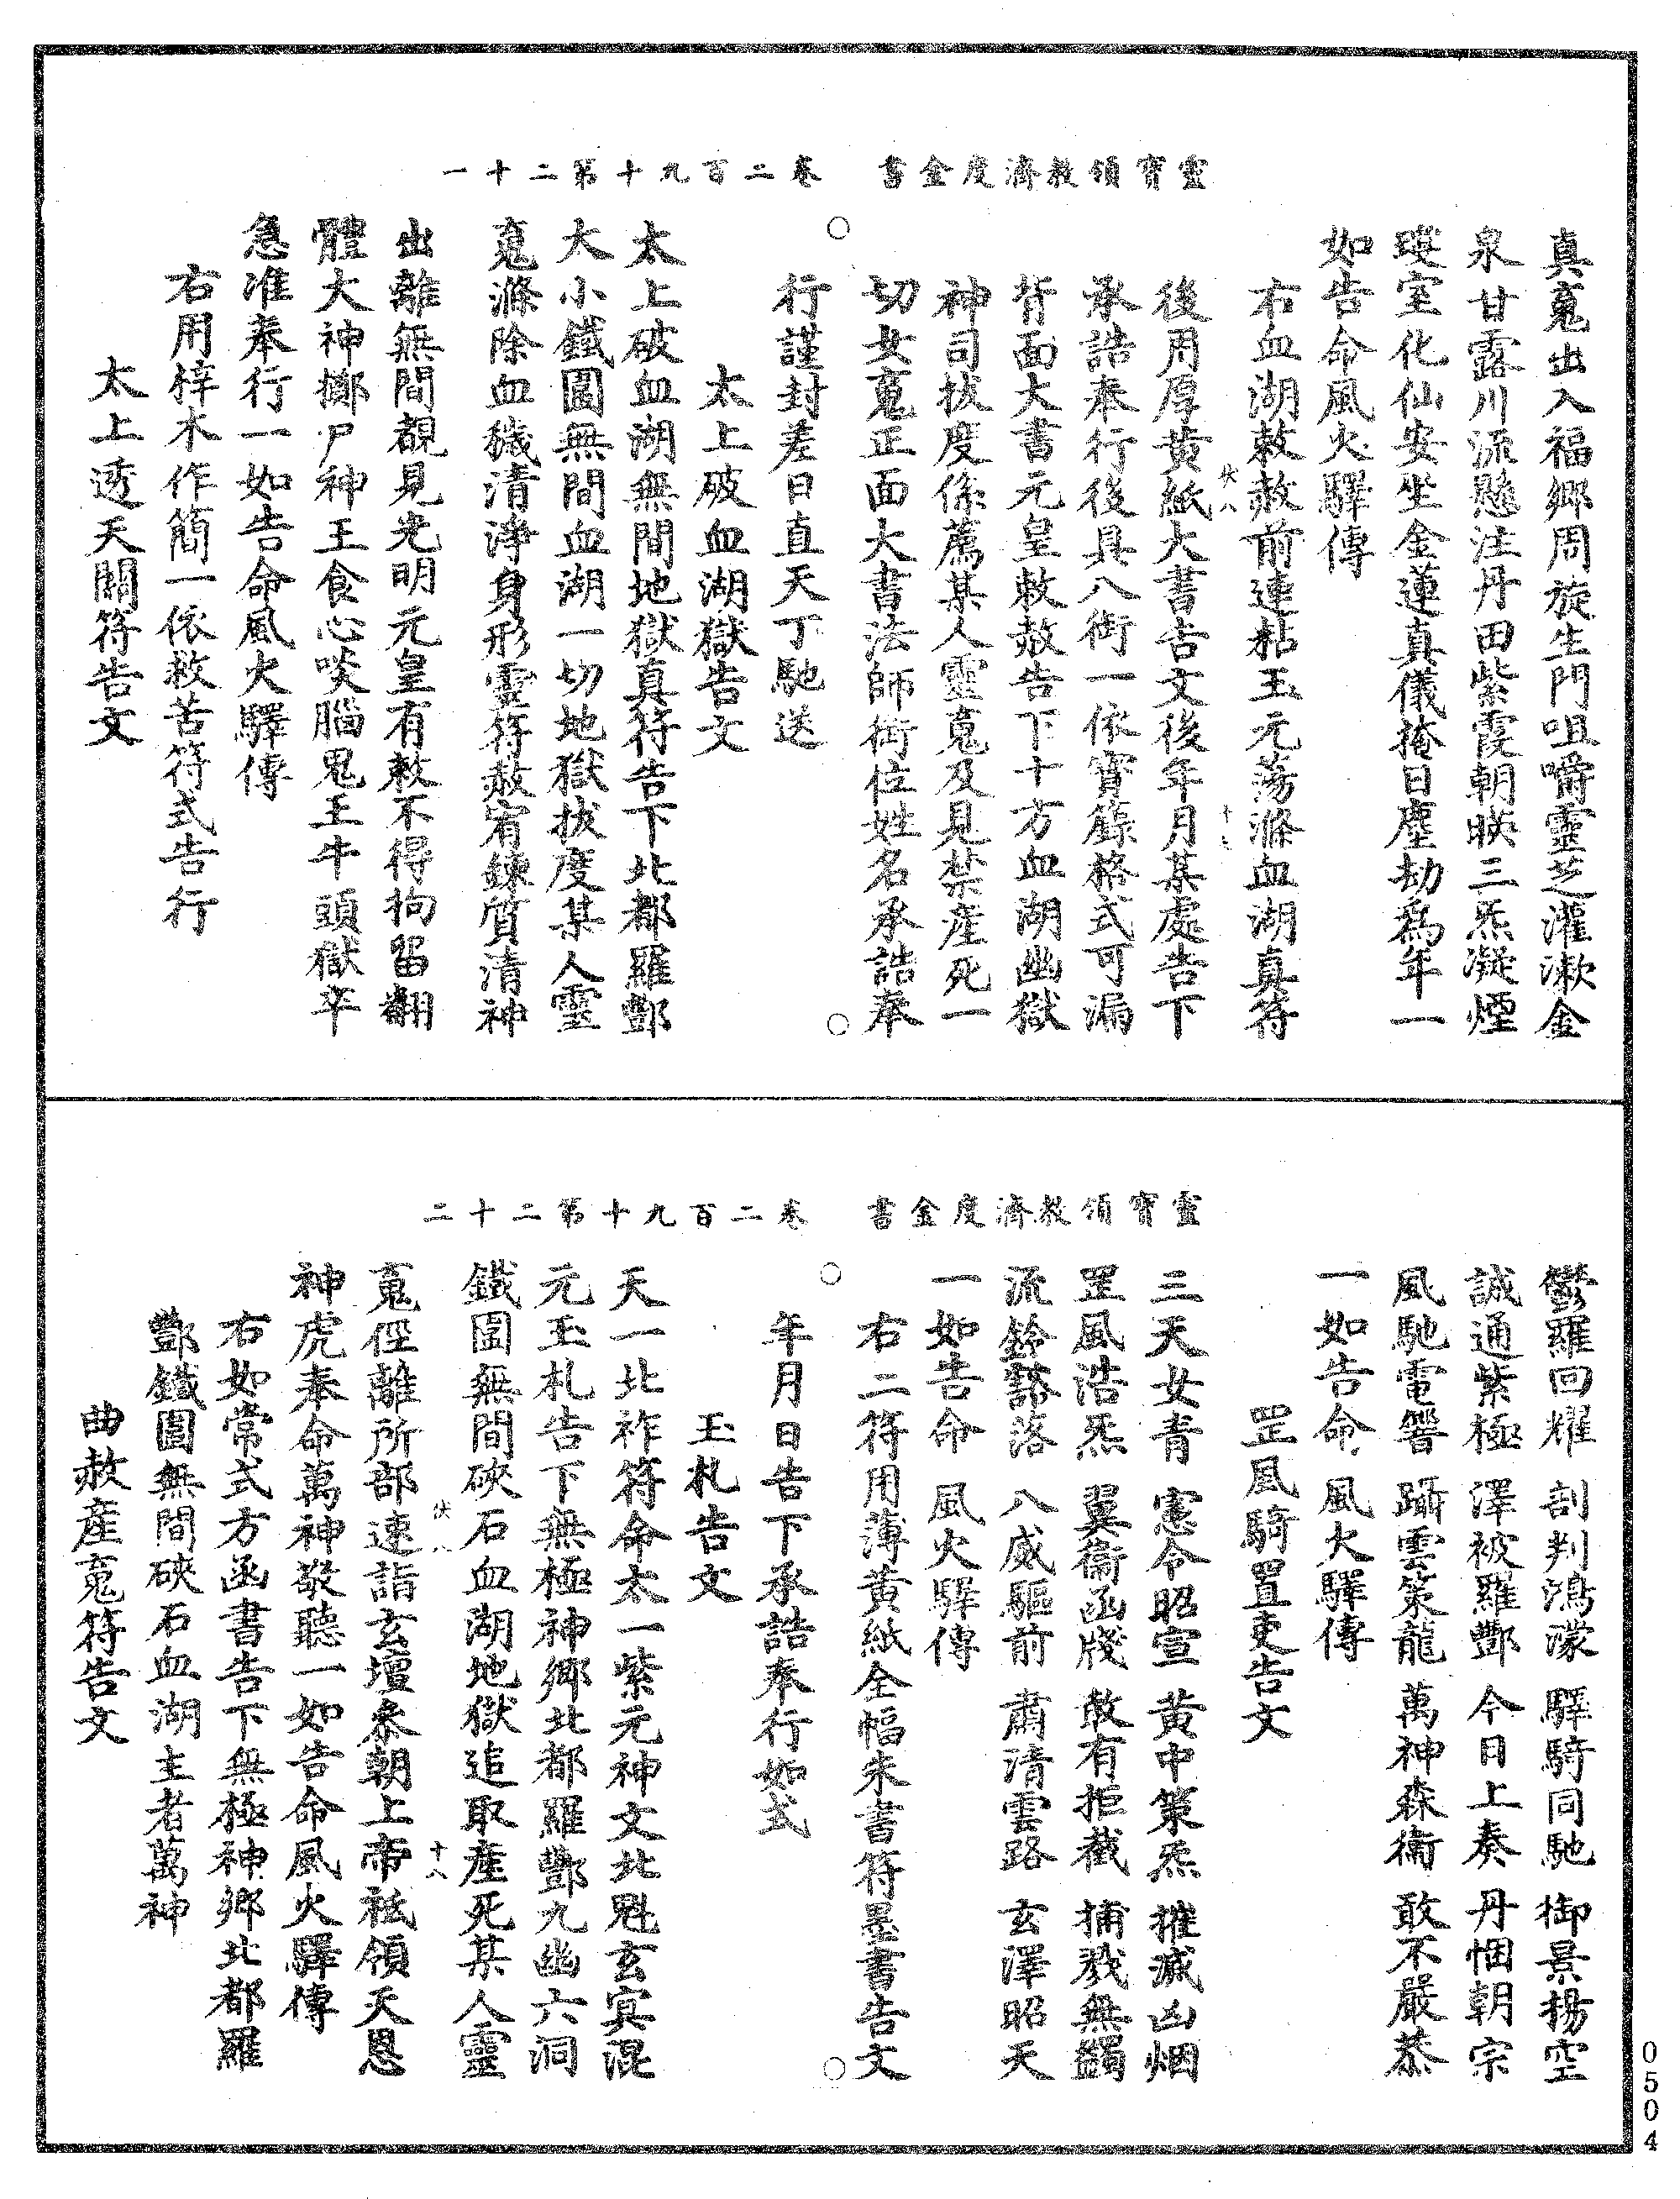 靈寶領教濟度金書　卷二百九十第二十一
真䰟出入福郷周旋生門咀嚼靈芝灌漱金
泉甘露川流懸注丹田紫霞朝映三炁凝煙
瑛室化仙安坐金蓮真儀掩日塵劫爲年一
如告命風火驛傳
右血湖敕赦前連粘玉元蕩滌血湖真符
後用厚黄紙大書告文後年月某處告下
承誥奉行後具入銜一依寶籙格式可漏
背面大書元皇敕赦告下十方血湖幽獄
神司拔度係薦某人靈䰟及見禁産死一
切女䰟正面大書法師銜位姓名承誥奉
行謹封差日直天丁馳送
太上破血湖獄告文
太上破血湖無間地獄真符告下北都羅酆
大小鐵圍無間血湖一切地獄拔度某人靈
䰟滌除血穢清淨身形靈符赦宥鍊質清神
出離無間覩見光明元皇有敕不得拘留翻
體大神擲尸神王食心啖腦鬼王牛頭獄卒
急准奉行一如告命風火驛傳
右用梓木作簡一依救苦符式告行
太上透天關符告文
靈寶領教濟度金書　卷二百九十第二十二
鬱羅回耀　剖判鴻濛　驛騎同馳　御景揚空
誠通紫極　澤被羅酆　今日上奏　丹悃朝宗
風馳電響　躡雲策龍　萬神森衛　敢不嚴恭
一如告命　風火驛傳
罡風騎置吏告文
三天女青　憲令昭宣　黄中策炁　摧滅凶烟
罡風浩炁　翼衛函牋　敢有拒截　捕戮無蠲
流鈴豁落　八威驅前　肅清雲路　玄澤昭天
一如告命　風火驛傳
右二符用薄黄紙全幅朱書符墨書告文
年月日告下承誥奉行如式
玉札告文
天一北祚符命太一紫元神文北魁玄㝠混
元玉札告下無極神郷北都羅酆九幽六洞
鐵圍無間硤石血湖地獄追取産死某人靈
䰟徑離所部速詣玄壇叅朝上帝祗領天恩
神虎奉命萬神敬聽一如告命風火驛傳
右如常式方函書告下無極神郷北都羅
酆鐵圍無間硤石血湖主者萬神
曲赦産䰟符告文
0504